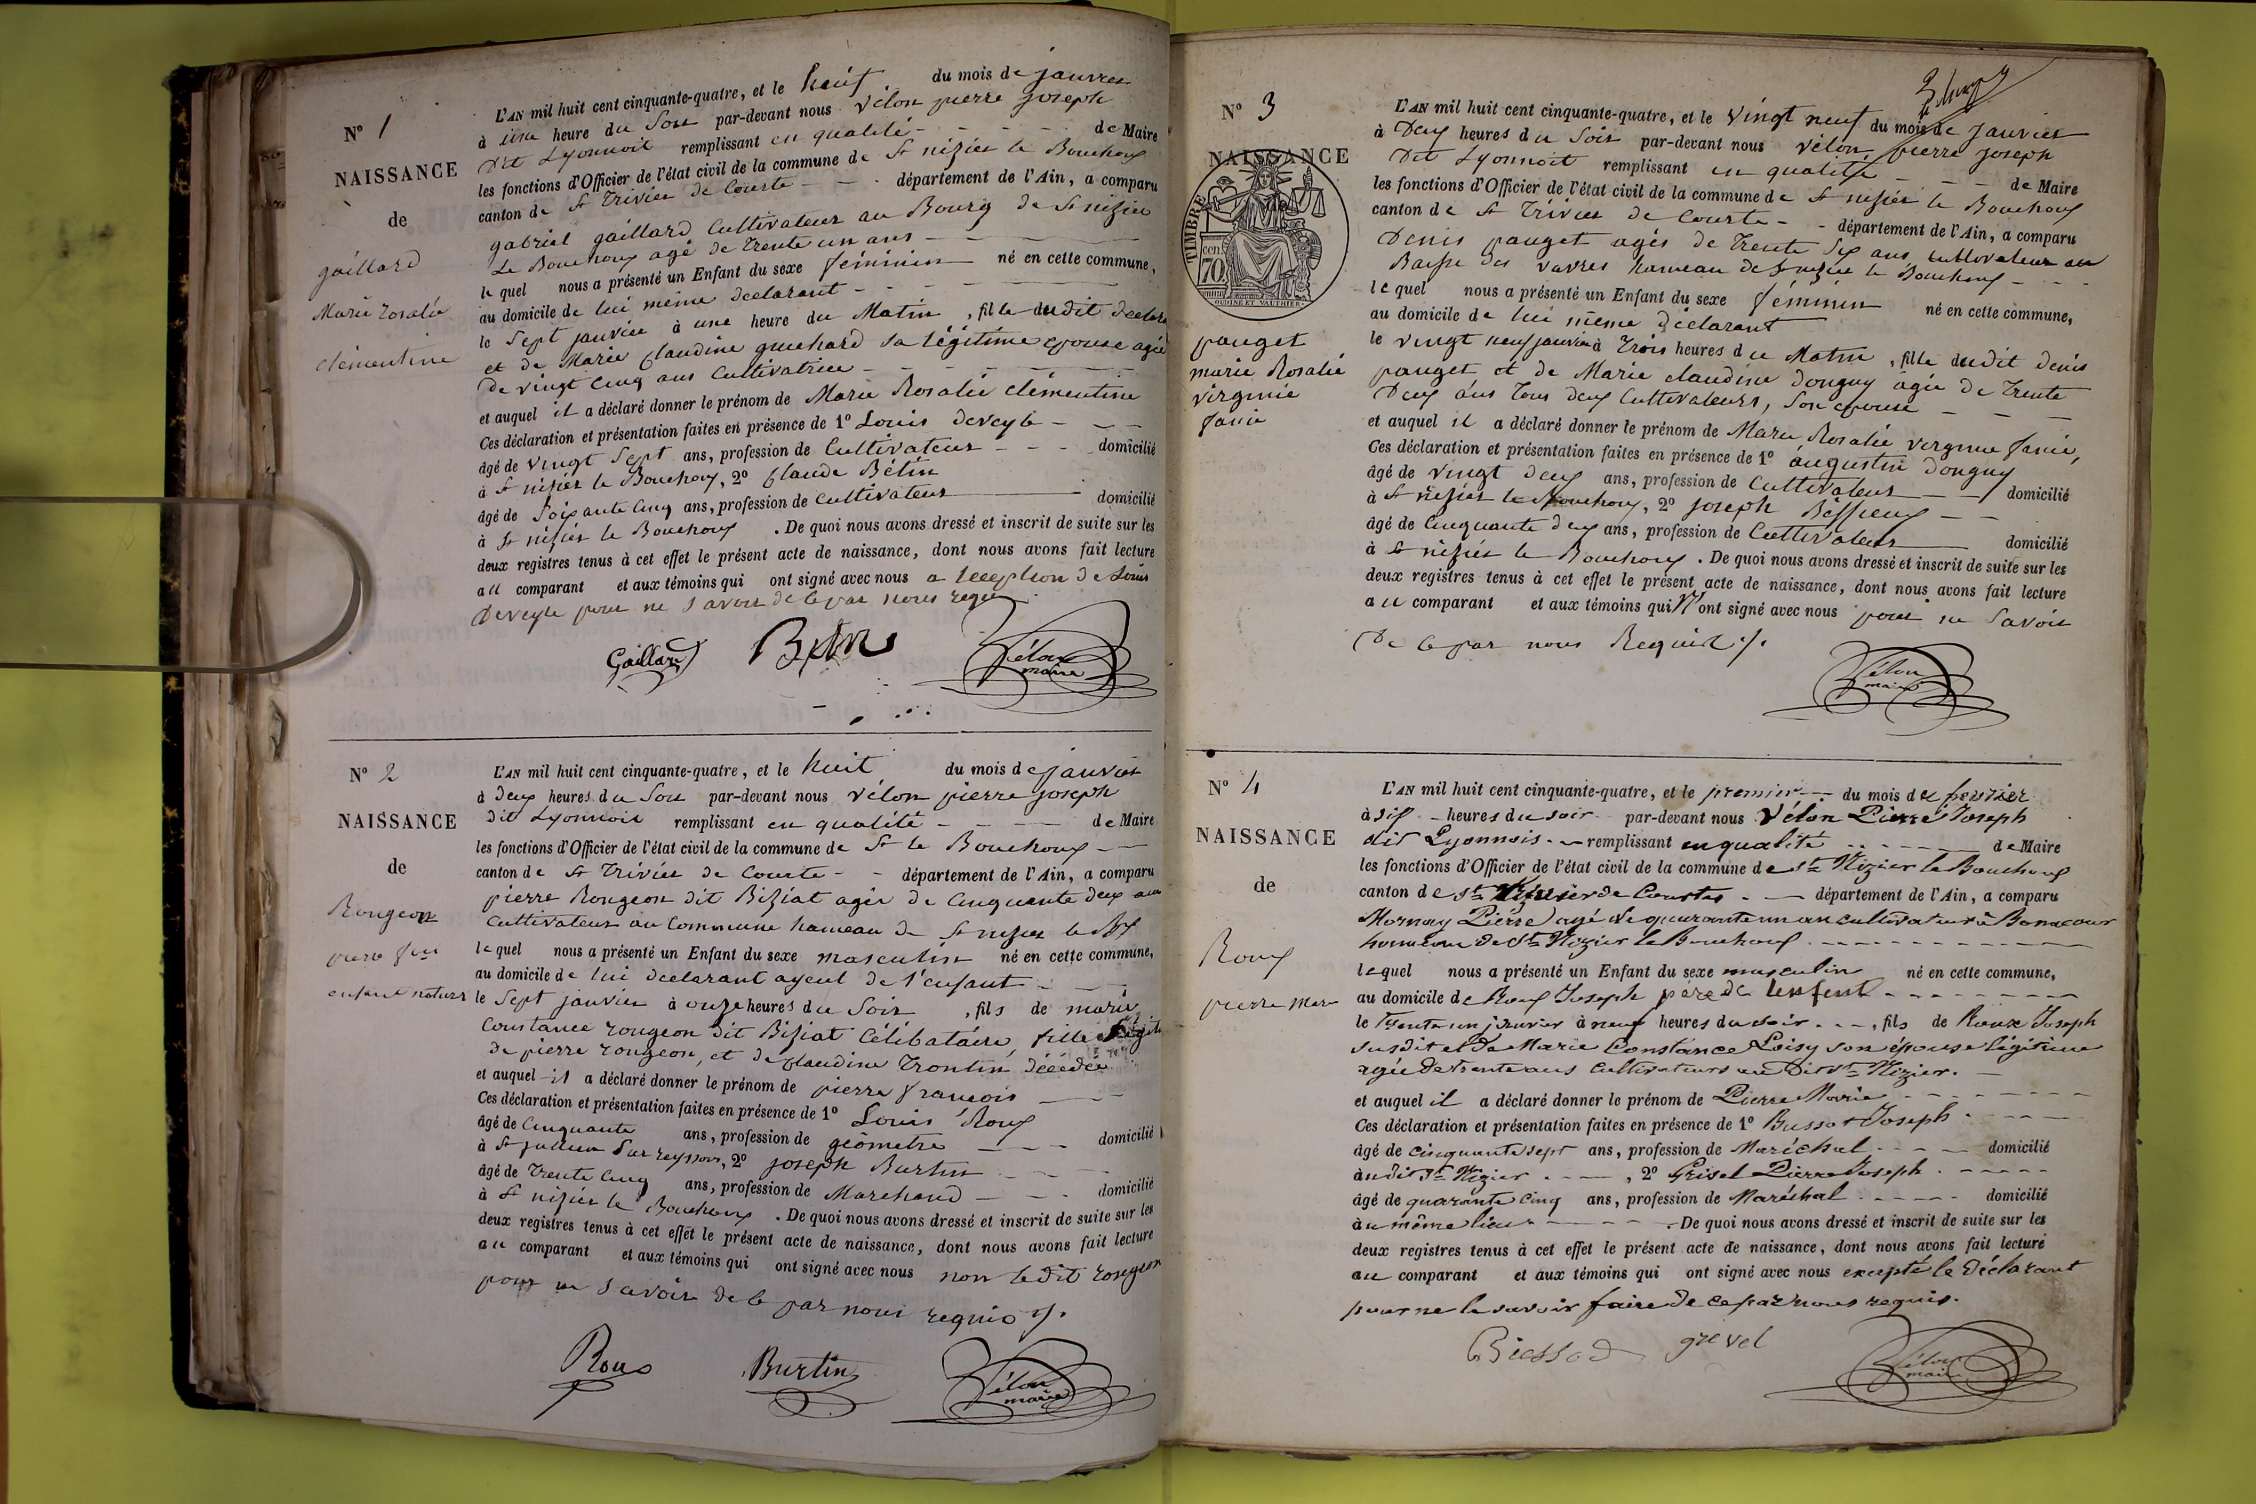 N° 1
NAISSANCE
de
gaillard
Marie rosalie
clémentine
L'AN mil huit cent cinquante-quatre, et le huit du mois de janvier
à une heure du Soir par-devant nous Vélon pierre joseph
Dit Lyonnois remplissant en qualité de Maire
les fonctions d'Officier de l'état civil de la commune de St nizier le Bouchoux
canton de St Trivier de Courte département de l'Ain, a comparu
gabriel gaillard Cultivateur au Bourg de St nizier
Le Bouchoux agé de Trente un ans
le quel nous a présenté un Enfant du sexe féminin né en cette commune,
au domicile de lui même déclarant
le Sept janvier à une heure du Matin, fille dudit déclara
et de Marie Claudine guichard sa légitime épouse agée
De vingt Cinq ans Cultivatrice
et auquel il a déclaré donner le prénom de Marie Rosalie clémentine
Ces déclaration et présentation faites en présence de 1° Louis deveyle
âgé de vingt Sept ans, profession de Cultivateur domicilié
à St nizier le Bouchoux, 2° Claude Bétin
âgé de Soixante Cinq ans, profession de Cultivateur domicilié
à St nizier le Bouchoux. De quoi nous avons dressé et inscrit de suite sur les
deux registres tenus à cet effet le présent acte de naissance, dont nous avons fait lecture
au comparant et aux témoins qui ont signé avec nous a Lexeption de Louis
Deveyle pour ne Savoir de ce par nous requis
Gaillard Vélon
maire
N° 2
NAISSANCE
de
Rongeon
enfant naturel
L'AN mil huit cent cinquante-quatre, et le huit du mois de janvier
à deux heures du Soir par-devant nous vélon pierre joseph
dit Lyonnois remplissant en qualité de Maire
les fonctions d'Officier de l'état civil de la commune de St le Bouchoux
canton de St Trivier de Courte département de l'Ain, a comparu
pierre Rongeon dit Biziat agée de Cinquante deux ans
Cultivateur au Commune hameau de St nizier le Bx
lequel nous a présenté un Enfant du sexe masculin né en cette commune,
au domicile de lui déclarant ayeul de l'enfant
le Sept janvier à onze heures du Soir, fils de marie
Constance rongeon dit Biziat Célibataire, fille
de pierre rongeon, et de Claudine Trontin décédée
et auquel il a déclaré donner le prénom de pierre françois
Ces déclaration et présentation faites en présence de 1° Louis Roux
âgé de Cinquante ans, profession de géomètre domicilié
à St julien Sur reyssouze, 2° joseph Burtin
âgé de Trente Cinq ans, profession de Marchand domicilié
à St nizier le Bouchoux. De quoi nous avons dressé et inscrit de suite sur les
deux registres tenus à cet effet le présent acte de naissance, dont nous avons fait lecture
au comparant et aux témoins qui ont signé avec nous non ledit rongeon
pour ne Savoir de ce par nous requis ./.
Roux Burtin Vélon
maire
N° 3
NAISSANCE
TIMBRE
70
OUDINE ET VAUTHIER
pauget
marie Rosalie
virginie
fanie
L'AN mil huit cent cinquante-quatre, et le Vingt neuf du mois de janvier
à Deux heures du Soir par-devant nous vélon pierre joseph
Dit Lyonnoit remplissant en qualité de Maire
les fonctions d'Officier de l'état civil de la commune de St nizier le Bouchoux
canton de St Trivier de Courte département de l'Ain, a comparu
Denis pauget agés de Trente Six ans, cultivateur au
Baisse des vavres hameau de St nizier le Bouchoux
lequel nous a présenté un Enfant du sexe féminin né en cette commune,
au domicile de lui même déclarant
le vingt neuf janvier à Trois heures du Matin, fille dudit denis
pauget et de Marie claudine donguy agée de Trente
Deux ans Tous deux Cultivateurs, Son épouse
et auquel il a déclaré donner le prénom de Marie Rosalie virginie fanie,
Ces déclaration et présentation faites en présence de 1° augustin donguy
âgé de vingt deux ans, profession de Cultivateur domicilié
à St nizier le Bouchoux, 2° joseph Bessieux
âgé de Cinquante deux ans, profession de Cultivateur domicilié
à St nizier le Bouchoux. De quoi nous avons dressé et inscrit de suite sur les
deux registres tenus à cet effet le présent acte de naissance, dont nous avons fait lecture
au comparant et aux témoins qui N'ont signé avec nous pour ne Savoir
De ce par nous Requis ./.
Vélon
maire
N° 4
NAISSANCE
de
Roux
pierre Marie
L'AN mil huit cent cinquante-quatre, et le premier du mois de fevrier
à six heures du soir par-devant nous Vélon Pierre Joseph
dit Lyonnois remplissant en qualité de Maire
les fonctions d'Officier de l'état civil de la commune de St Nizier le Bouchoux
canton de St Trivier de Courtes département de l'Ain, a comparu
Mornay Pierre agé de quarante un ans cultivateur à Bonnecour
hameau de St Nizier le Bouchoux
lequel nous a présenté un Enfant du sexe masculin né en cette commune,
au domicile de Roux Joseph père de lenfent
le Trente un janvier à neuf heures du soir, fils de Roux Joseph
susdit et de Marie Constance Loisy son épouse légitime
agée de trente ans Cultivateurs au Dit St Nizier.
et auquel il a déclaré donner le prénom de Pierre Marie
Ces déclaration et présentation faites en présence de 1° Bussot Joseph
âgé de cinquante sept ans, profession de Maréchal domicilié
audit St Nizier, 2° Grisel Pierre Joseph
âgé de quarante Cinq ans, profession de Maréchal domicilié
au même lieu. De quoi nous avons dressé et inscrit de suite sur les
deux registres tenus à cet effet le présent acte de naissance, dont nous avons fait lecture
au comparant et aux témoins qui ont signé avec nous excepté le Déclarant
pour ne le savoir faire de ce par nous requis.
Vélon
maire